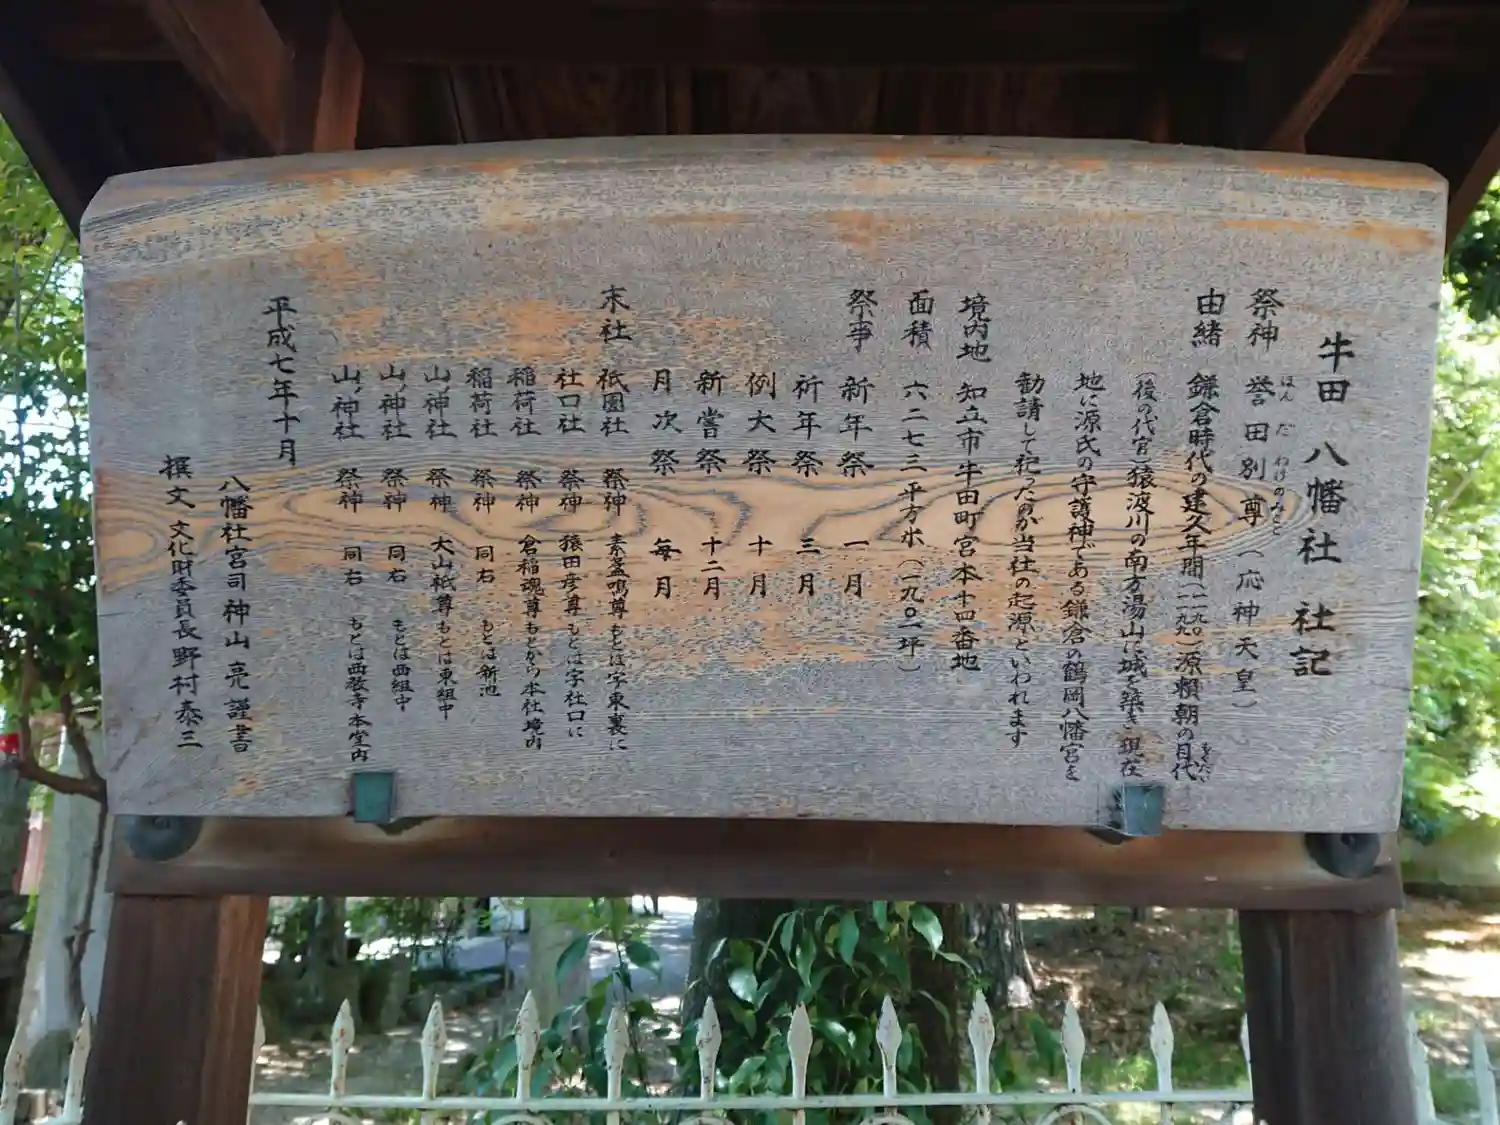 牛田八幡社 社記
祭神 誉田別尊（応神天皇）
ほんだわけのみこと
由緒 鎌倉時代の建久年間（一一九〇一一九九）源頼朝の目代
もくだい
（後の代官）猿渡川の南方湯山に城を築き現在
地に源氏の守護神である鎌倉の鶴岡八幡宮を
勧請して祀ったのが当社の起源といわれます
境内地 知立市牛田町宮本十四番地
面積 六二七三平方米（一九〇一坪）
祭事 新年祭 一月
祈年祭 三月
例大祭 十月
新嘗祭 十二月
月次祭 毎月
末社 祇園社 祭神 素盞鳴尊 もとは字東裏に
社口社 祭神 猿田彦尊 もとは字社口に
稲荷社 祭神 倉稲魂尊 もとから本社境内
稲荷社 祭神 同右 もとは新池
山ノ神社 祭神 大山祇尊 もとは東組中
山ノ神社 祭神 同右 もとは西組中
山ノ神社 祭神 同右 もとは西教寺本堂内
平成七年十月
八幡社宮司 神山 亮 謹書
撰文 文化財委員長 野村泰三